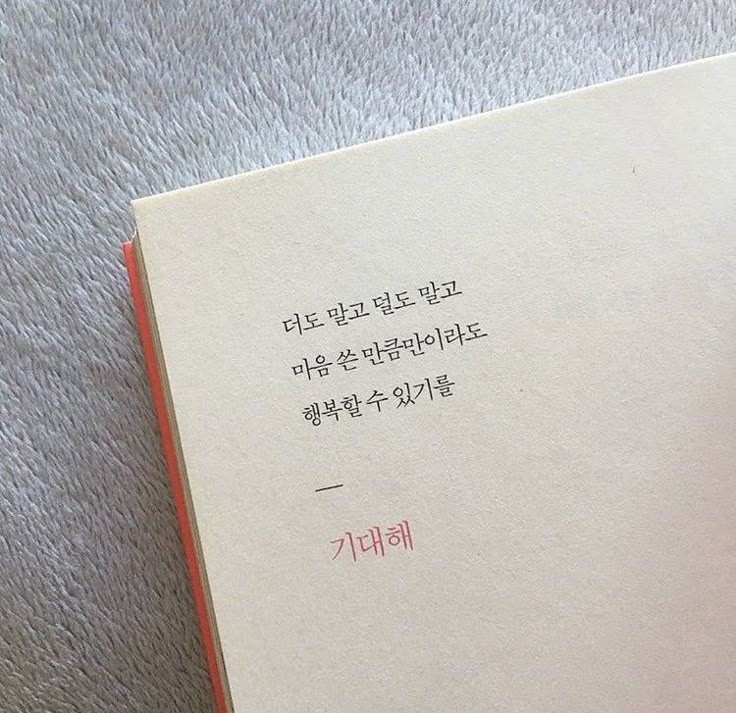 더도 말고 덜도 말고
마음 쓴 만큼만이라도
행복할 수 있기를
—
기대해